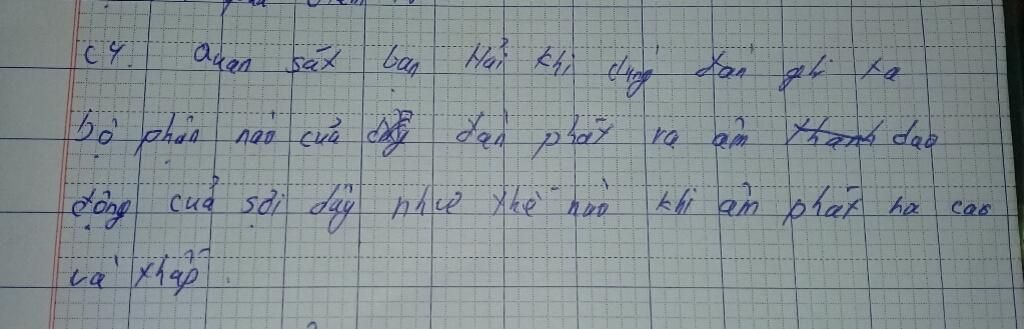 C4. Quan sát bạn Hải khi dùng đàn ghi ta
bộ phận nào của đàn phát ra âm thanh dao
động của sợi dây như thế nào khi âm phát ra cao
và thấp.